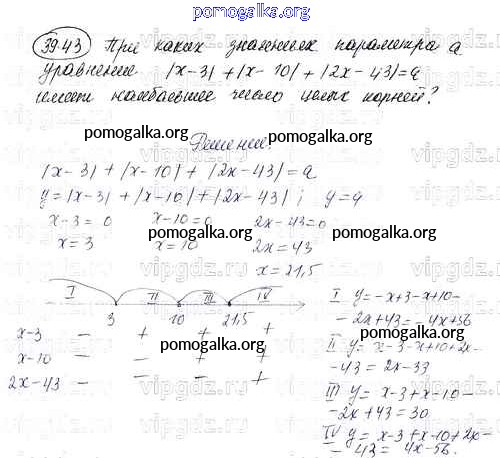 pomogalka.org
39.43 При каких значениях параметра a
уравнение |x-3| + |x-10| + |2x-43| = a
имеет наибольшее число целых корней?
pomogalka.org
Решение:
|x-3| + |x-10| + |2x-43| = a
y = |x-3| + |x-10| + |2x-43| ; y = a
x-3=0 x-10=0 2x-43=0
pomogalka.org pomogalka.org
x=3 x=10 2x=43
x=21,5
I II III IV
3 10 21,5
x-3 - + + +
x-10 - - + +
2x-43 - - - +
pomogalka.org
I y = -x+3-x+10-
-2x+43 = -4x+56
II y = x-3-x+10+2x-
-43 = 2x-33
III y = x-3+x-10-
-2x+43 = 30
IV y = x-3+x-10+2x-
-43 = 4x-56.
pomogalka.org
vipgdz.ru